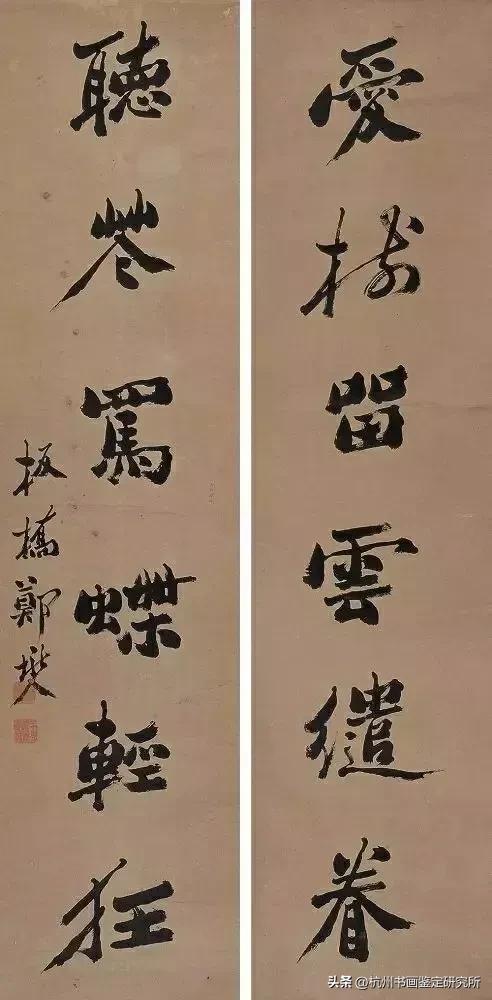 愛樹留雲繾眷
聽花罵蝶輕狂
板橋鄭燮
头条 @杭州书画鉴定研究所